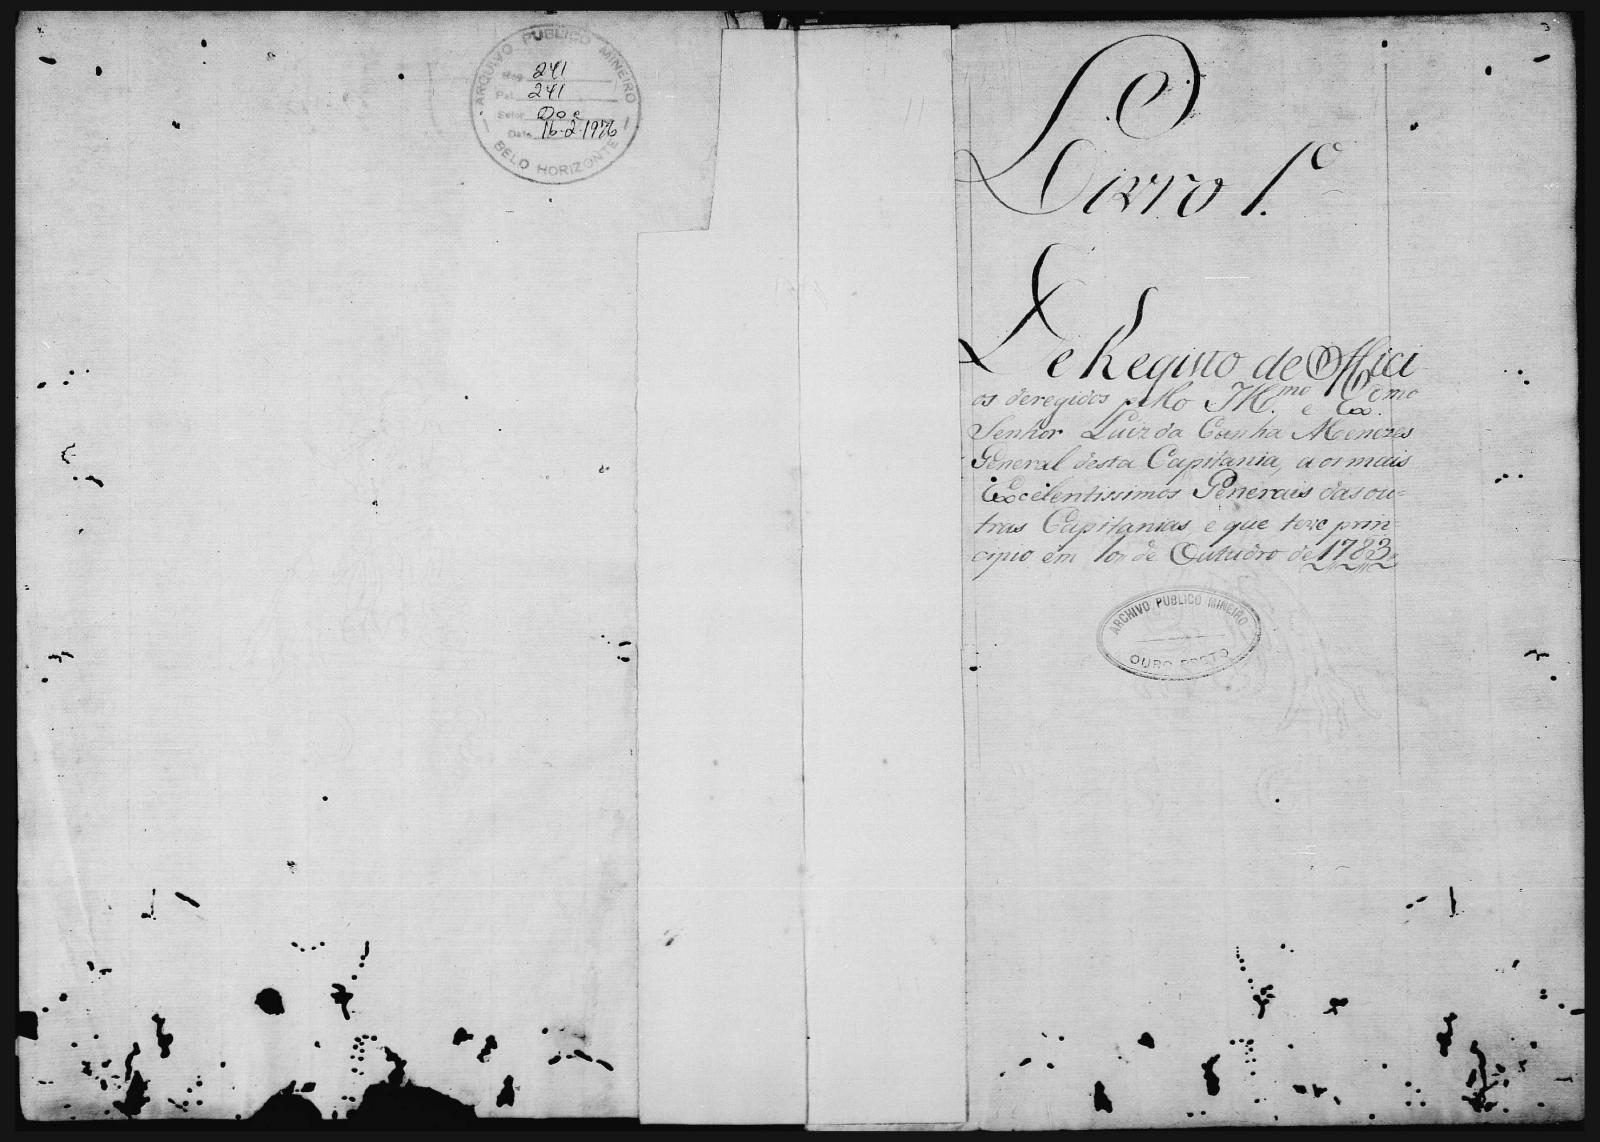 ARQUIVO PUBLICO MINEIRO
241
Pat. 241
Setor Doc
Data 16-2-1976
BELO HORIZONTE
Livro 1.º
De Registo de Offici
os deregidos pello Ill.mo e Ex.mo
Senhor Luiz da Cunha Menezes
General desta Capitania, aos mais
Excelentissimos Generais das ou-
tras Capitanias e que teve prin-
cipio em 10 de Outubro de 1783
ARCHIVO PUBLICO MINEIRO
OURO PRETO